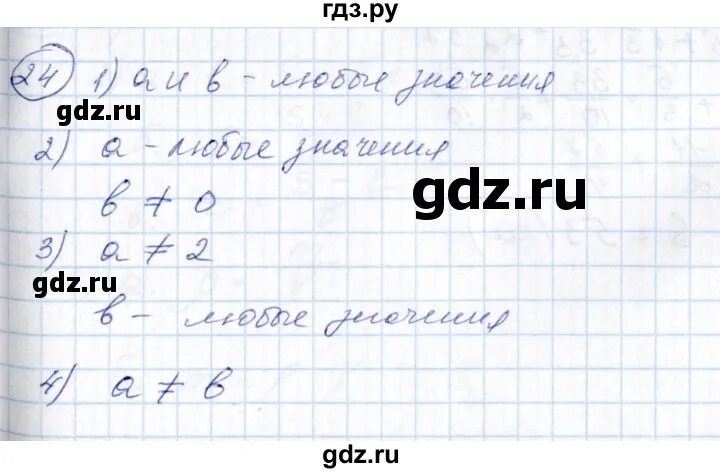 гдз.ру
24 1) a и b - любые значения
gdz.ru
2) a - любые значения
b ≠ 0
gdz.ru
3) a ≠ 2
gdz.ru
b - любые значения
4) a ≠ b
gdz.ru